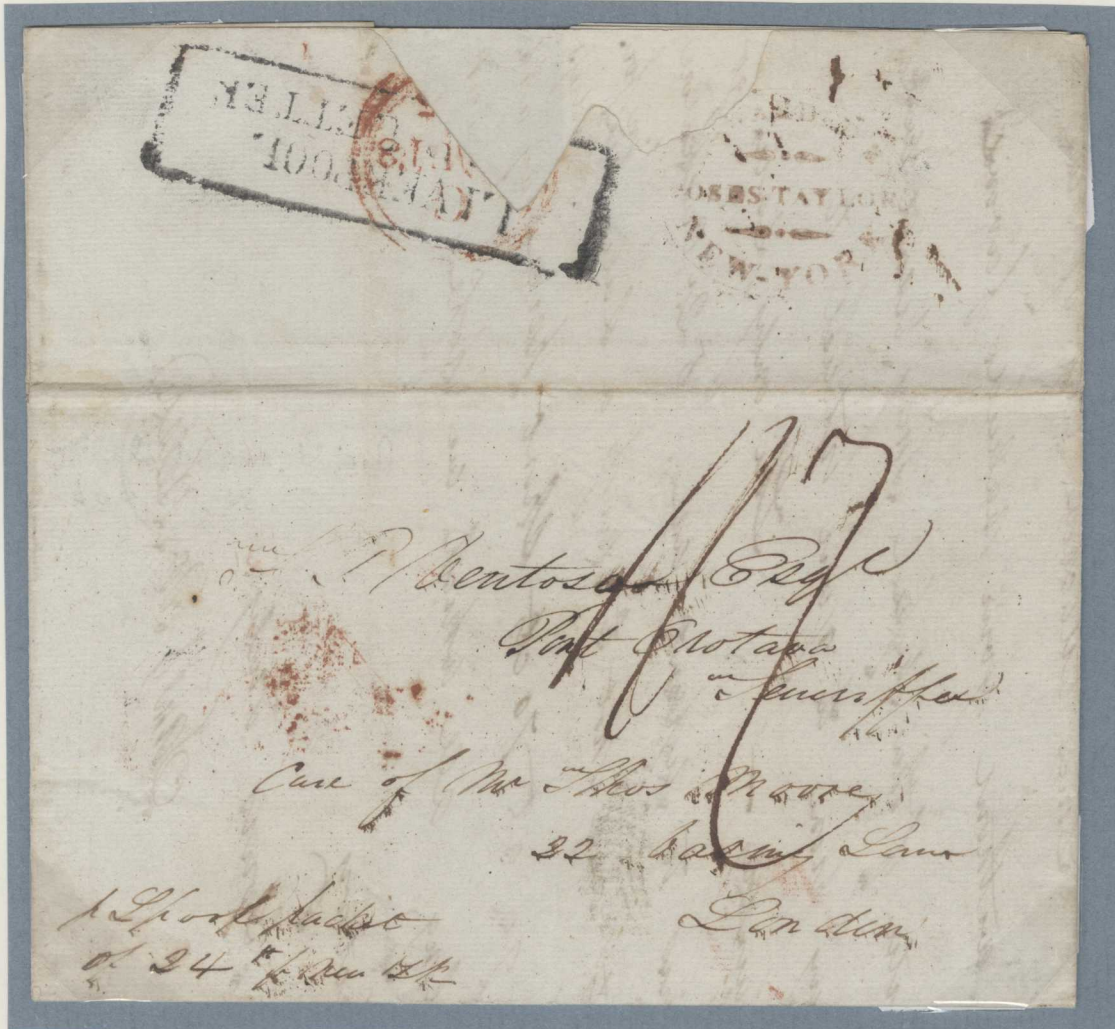 LIVERPOOL
LETTER
MOSES TAYLOR
NEW-YORK
Ventosa Esqr
Port Orotava
Teneriffe
Care of Mr Thos Moore
22 Basing Lane
London
p Lpool packet
of 24th f New York